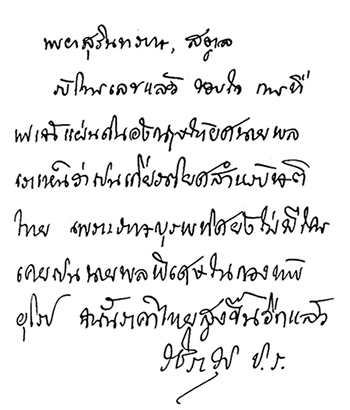 พยาสุรินทราชา, สตูล
ได้โทรเลขแล้ว ขอบใจ การที่
พระเจ้าแผ่นดินอังกฤษให้ยศนายพล
เราเห็นว่าเปนเกียรติยศสำหรับชาติ
ไทย เพราะทางบุรพทิศยังไม่มีใคร
เคยเปนนายพลพิเศษในกองทัพ
ยุโรป ฉนั้นราคาไทยสูงขึ้นอีกแล้ว
วชิราวุธ ป.ร.